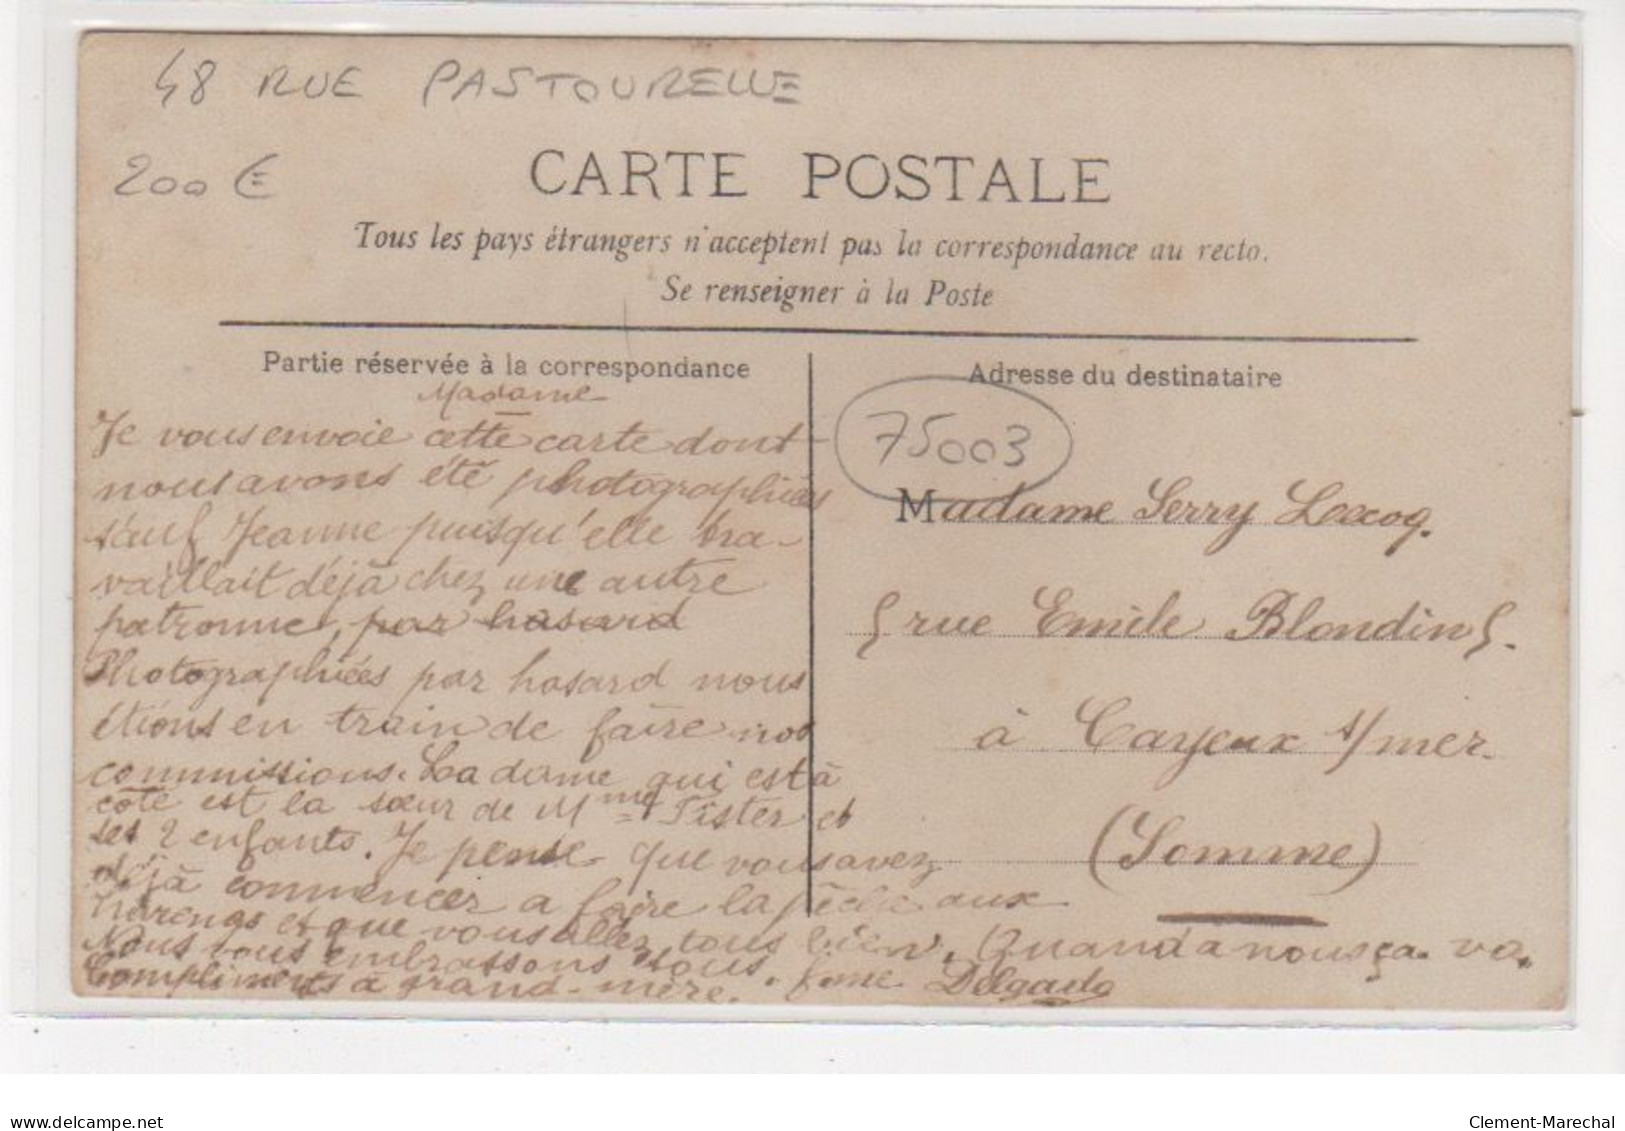 48 RUE PASTOURELLE
200 €
CARTE POSTALE
Tous les pays étrangers n'acceptent pas la correspondance au recto.
Se renseigner à la Poste
Partie réservée à la correspondance
Madame
Je vous envoie cette carte dont
nous avons été photographiées
sauf Jeanne puisqu'elle tra-
vaillait déjà chez une autre
patronne, par hasard
Photographiées par hasard nous
étions en train de faire nos
commissions. La dame qui est à
côté est la sœur de Mme Tister et
ses 2 enfants. Je pense que vous avez
déjà commencer a faire la pêche aux
harengs et que vous allez tous bien. Quand a nous ça va.
Nous vous embrassons tous. fme Delgado
Compliments à grand-mère.
Adresse du destinataire
75003
Madame Serry Lecocq.
5 rue Emile Blondin 5.
à Cayeux s/mer
(Somme)
www.delcampe.net
Clement-Marechal